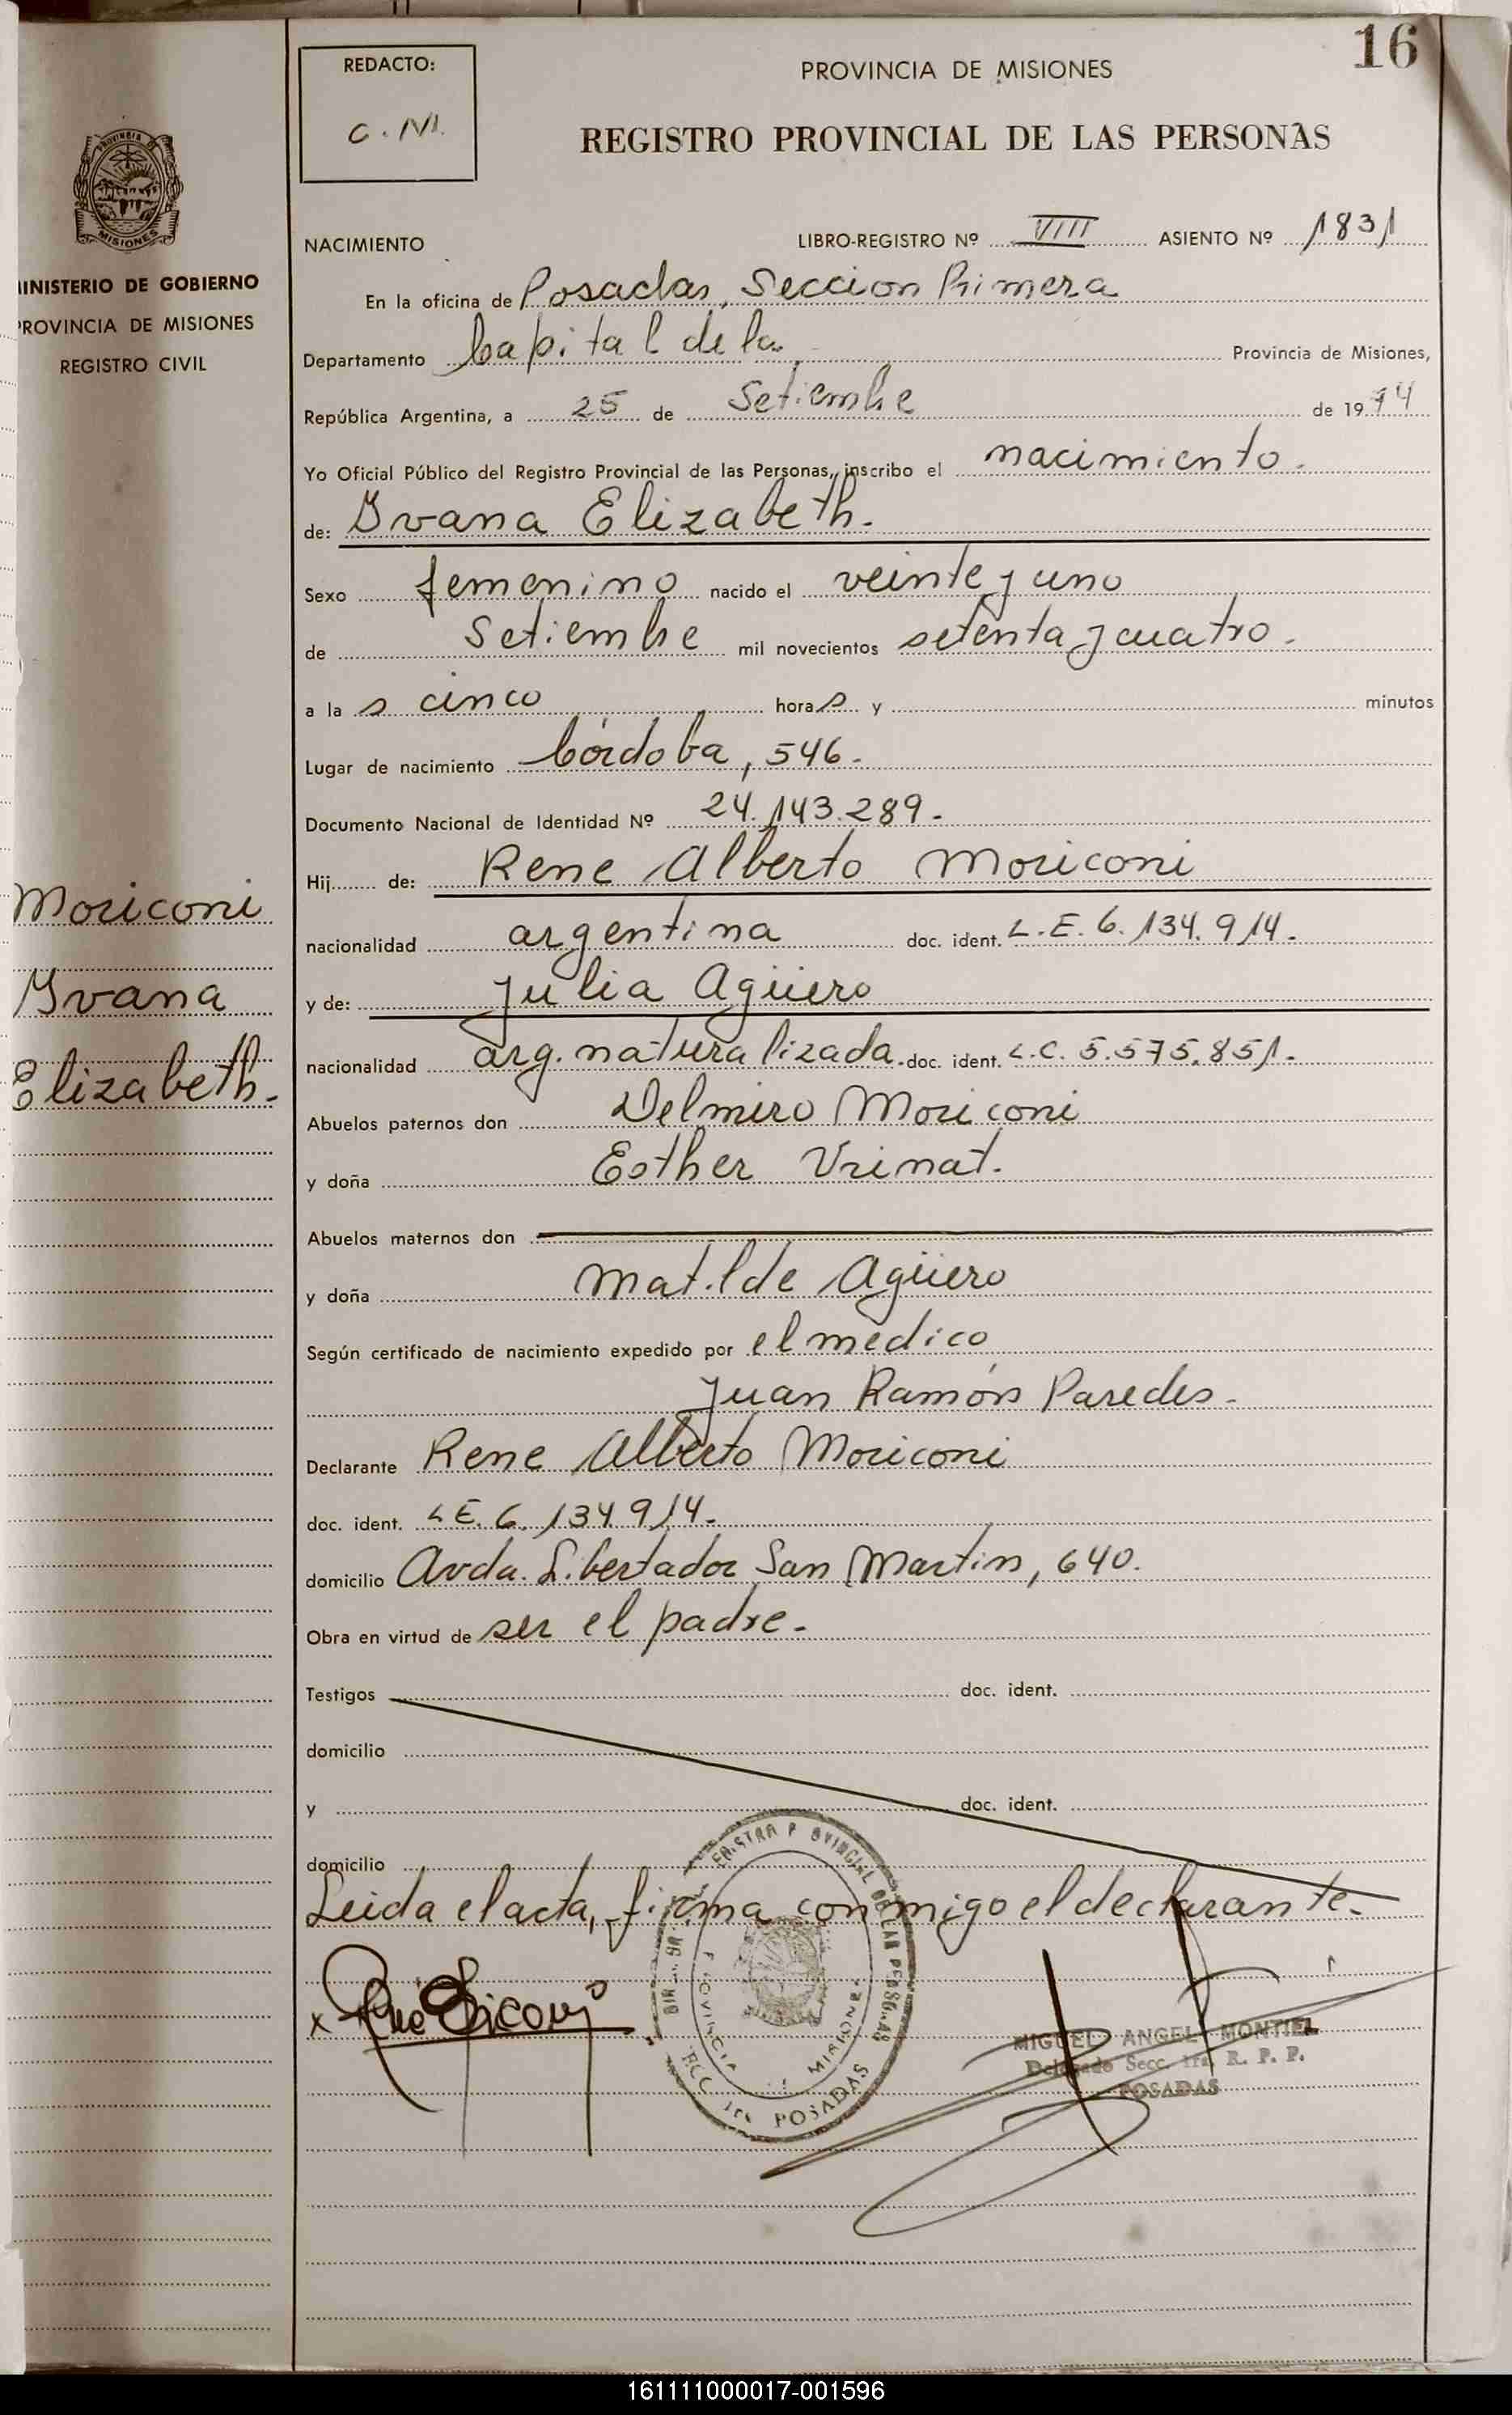 16
REDACTO:
C. M.
PROVINCIA DE MISIONES
REGISTRO PROVINCIAL DE LAS PERSONAS
PROVINCIA DE
MISIONES
MINISTERIO DE GOBIERNO
PROVINCIA DE MISIONES
REGISTRO CIVIL
NACIMIENTO LIBRO-REGISTRO Nº VIII ASIENTO Nº 1831
En la oficina de Posadas, Seccion Primera
Departamento Capital de la Provincia de Misiones,
República Argentina, a 25 de Setiembre de 1974
Yo Oficial Público del Registro Provincial de las Personas, inscribo el nacimiento.
de: Ivana Elizabeth.
Sexo femenino nacido el veinte y uno
de Setiembre mil novecientos setenta y cuatro.
a la s cinco hora s y minutos
Lugar de nacimiento Córdoba, 546.
Documento Nacional de Identidad Nº 24.143.289.
Hij de: Rene Alberto Moriconi
nacionalidad argentina doc. ident. L.E. 6.134.914.
y de: Julia Agüero
nacionalidad arg. naturalizada. doc. ident. L.C. 5.575.851.
Abuelos paternos don Delmiro Moriconi
y doña Esther Urinat.
Abuelos maternos don
y doña Matilde Agüero
Según certificado de nacimiento expedido por el medico
Juan Ramón Paredes.
Declarante Rene Alberto Moriconi
doc. ident. L.E. 6.134.914.
domicilio Avda. Libertador San Martin, 640.
Obra en virtud de ser el padre.
Testigos doc. ident.
domicilio
y doc. ident.
domicilio
Leida el acta, firma conmigo el declarante.
Moriconi
Ivana
Elizabeth.
PROVINCIA MISIONES
POSADAS
MIGUEL ANGEL MONTIEL
Delegado Secc. 1ra. R. P. P.
POSADAS
161111000017-001596